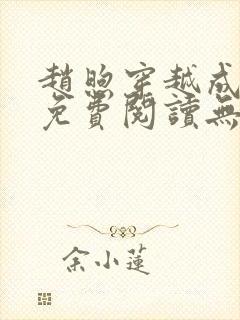 趙煦穿越成
免費閱讀無
余小蓮